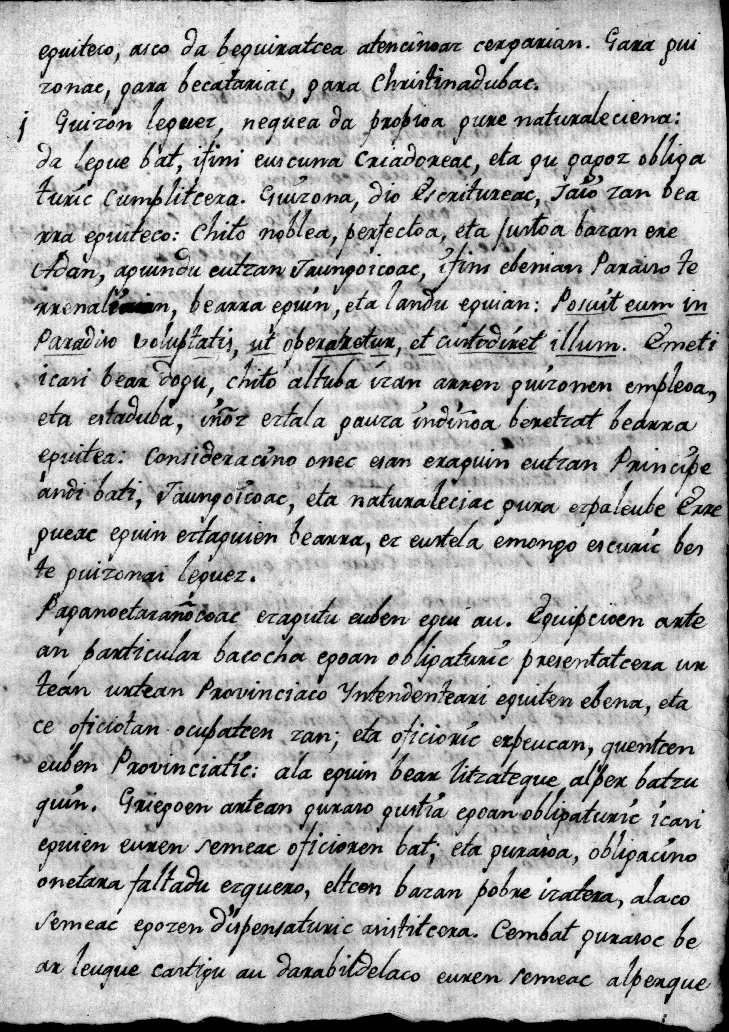 eguiteco, asco da beguiratcea atencinoaz cergarian. Gara gui
zonac, gara becatariac, gara Christinadubac.
j Guizon leguez, neguea da propioa gure naturaleciena:
da legue bat, ifini euscuna Criadoreac, eta gu gagoz obliga
turic Cumplitcera. Guizona, dio Escritureac, Jaio zan bea
rra eguiteco: Chito noblea, perfectoa, eta Justoa bazan ere
Adan, aguindu eutzan Jaungoicoac, ifini ebenian Paraiso te
rrenal, bearra eguin, eta landu eguian: Posuit eum in
Paradiso voluptatis, ut operaretur, et custodiret illum. Emeti
icasi bear dogu, chito altuba izan arren guizonen empleoa,
eta estaduba, iñoz eztala gauza indiñoa beretzat bearra
eguitea: Consideracino onec esan eraguin eutzan Principe
andi bati, Jaungoicoac, eta naturaleciac gura ezpaleube Erre
gueac eguin eztaguien bearra, ez eustela emongo escuric bes
te guizonai leguez.
Paganoetarañocoac ezagutu euben egui au. Eguipcioen arte
an particular bacocha egoan obligaturic presentatcera ur
tean urtean Provinciaco Yntendenteari eguiten ebena, eta
ce oficiotan ocupatcen zan; eta oficioric ezpeucan, quentcen
euben Provinciatic: ala eguin bear litzateque alper batzu
quin. Griegoen artean guraso gustia egoan obligaturic icasi
eguien euren semeac oficioren bat; eta gurasoa, obligacino
onetara faltadu ezquero, eltcen bazan pobre izatera, alaco
semeac egozen dispensaturic asistitcera. Cembat gurasoc be
ar leuque castigu au darabildelaco euren semeac alperque